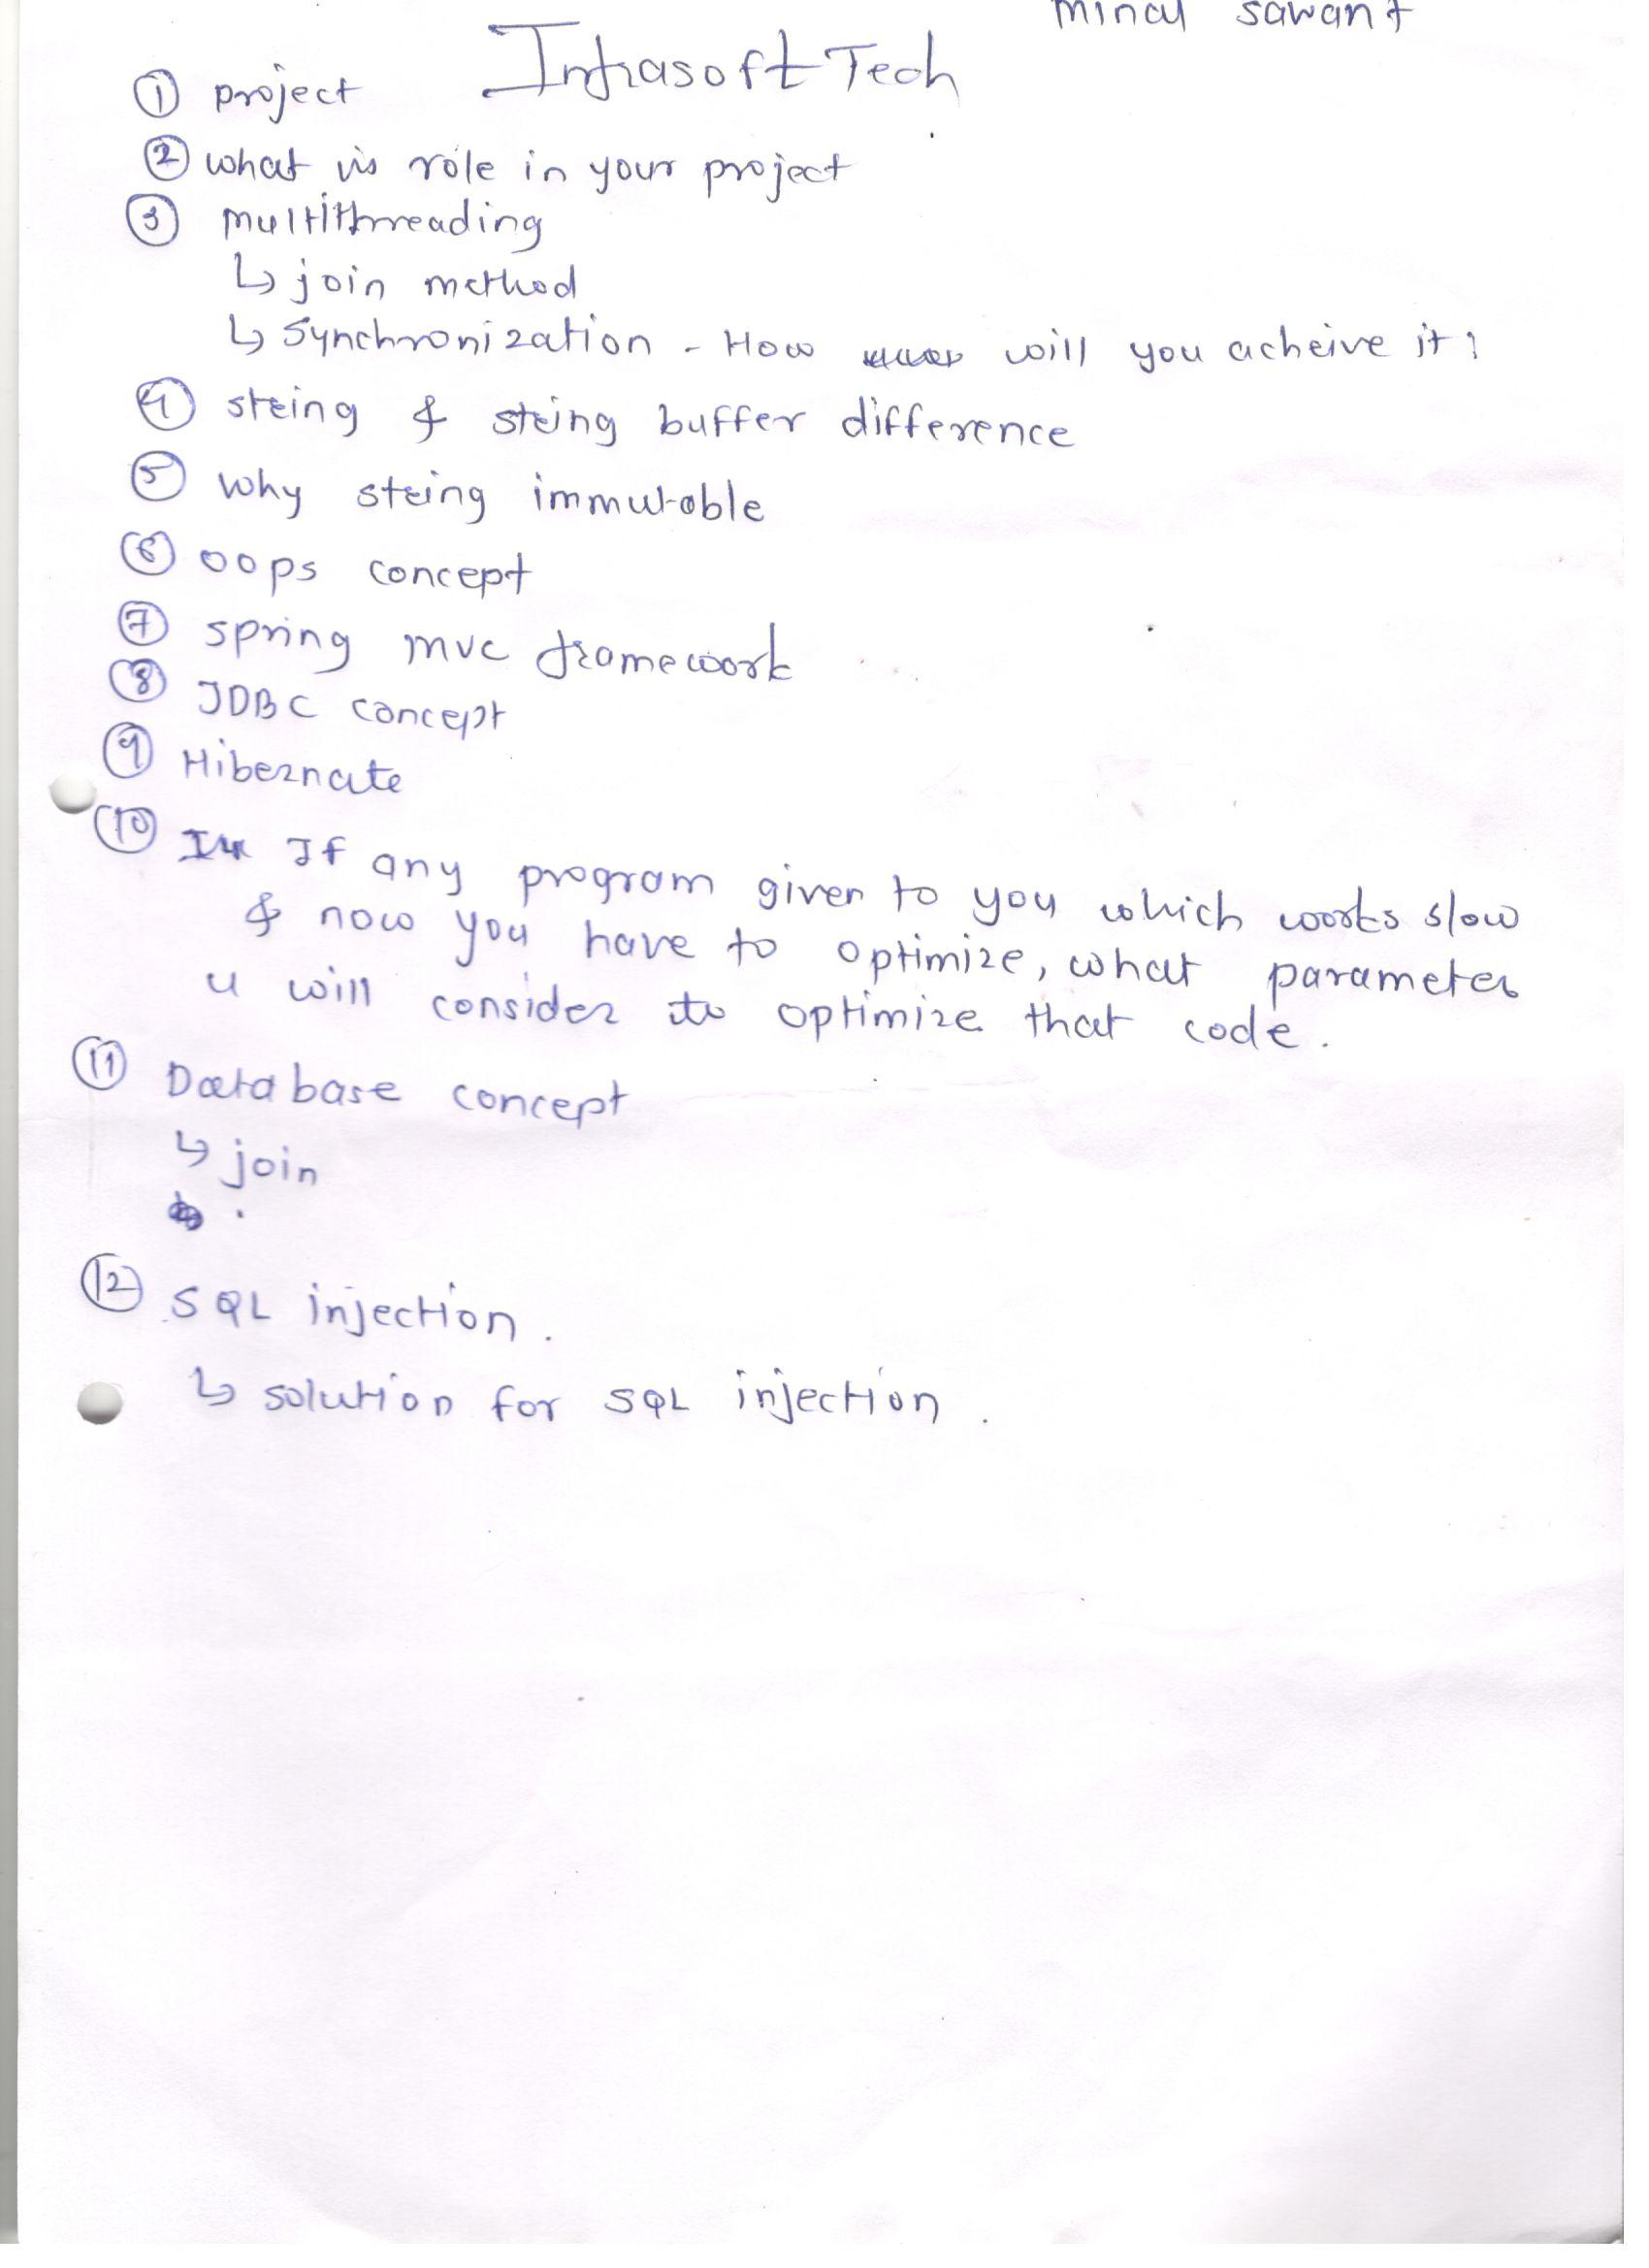 Minal Sawant
Infrasoft Tech
① project
② what is role in your project
③ multithreading
↳ join method
↳ Synchronization - How will you acheive it?
④ string & string buffer difference
⑤ why string immutable
⑥ oops concept
⑦ spring mvc framework
⑧ JDBC concept
⑨ Hibernate
⑩ If any program given to you which works slow
& now you have to optimize, what parameter
u will consider to optimize that code.
⑪ Database concept
↳ join
⑫ SQL injection.
↳ solution for SQL injection.